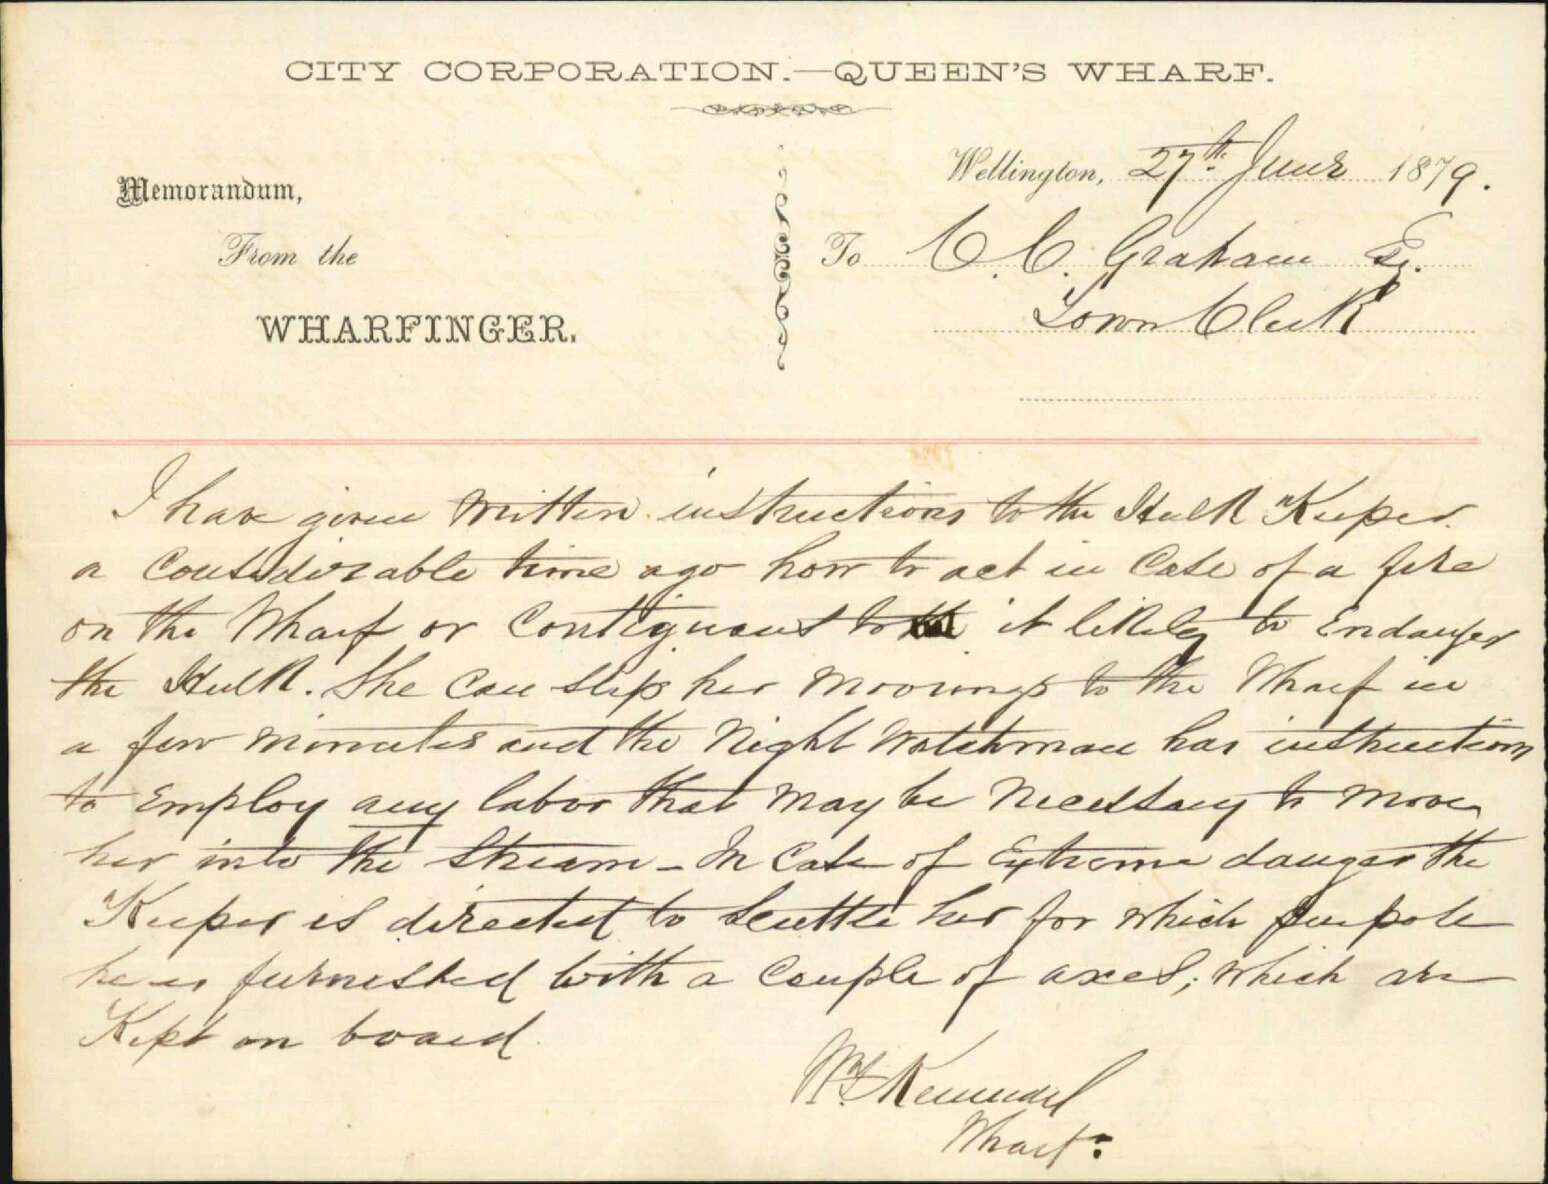 CITY CORPORATION.—QUEEN'S WHARF.
Memorandum,
From the
WHARFINGER.
Wellington, 27th June 1879.
To C. C. Graham Esq.
Town Clerk
I have given written instructions to the Hulk Keeper
a considerable time ago how to act in case of a fire
on the Wharf or contiguous to it likely to endanger
the Hulk. She can slip her moorings to the Wharf in
a few minutes and the Night Watchman has instructions
to employ any labor that may be necessary to move
her into the stream - In case of extreme danger the
Keeper is directed to scuttle her for which purpose
he is furnished with a couple of axes; which are
Kept on board.
Wm
Wharfr